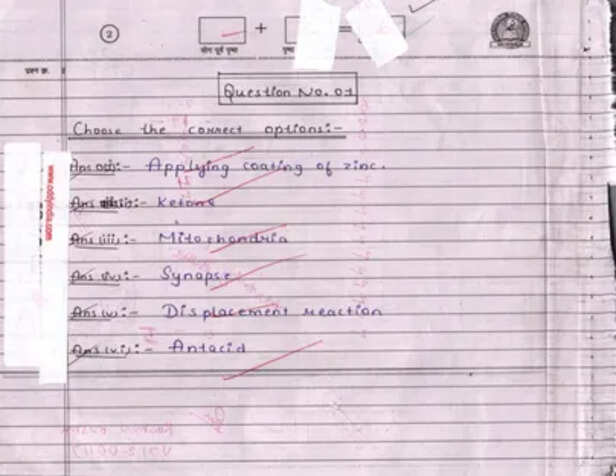 2
+
=
योग पूर्व पृष्ठ
पृष्ठ
प्रश्न क्र.
Question No. 01
Choose the correct options:-
Ans (i):- Applying coating of zinc.
Ans (ii):- Ketone
Ans (iii):- Mitochondria
Ans (iv):- Synapse
Ans (v):- Displacement reaction
Ans (vi):- Antacid
www.oddyindia.com